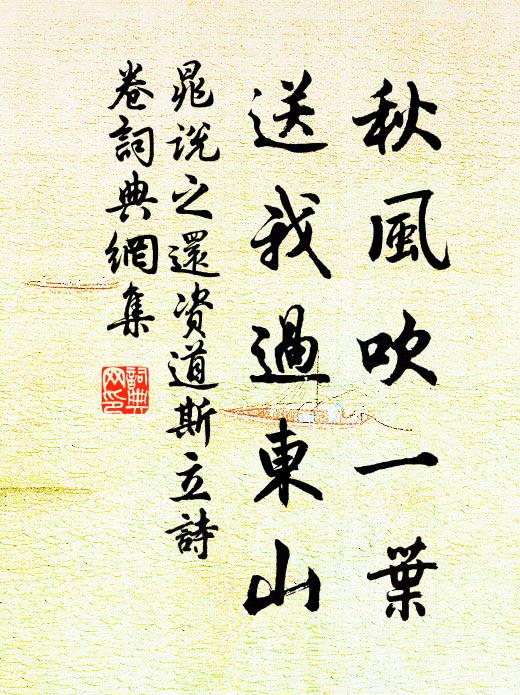 秋風吹一葉
送我過東山
晁説之還資道斯立詩
卷詞典網集
詞典
网印